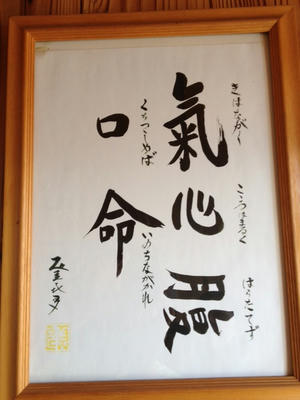 きはながく
こころはまるく
はらたてず
氣心腹
くちつつしめば
いのちながかれ
口命